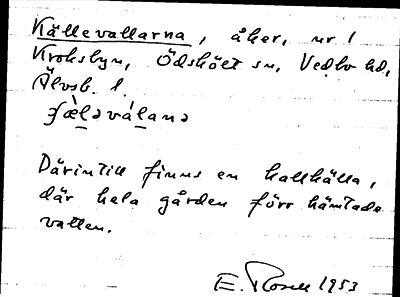 Källevallarna, åker, nr 1
Kroksbyn, Ödsköet sn, Vedbo hd,
Älvsb. l.
ɟæ̀l̠əvál̠anə
Därintill finns en kallkälla,
där hela gården förr hämtade
vatten.
E. Rosell 1953